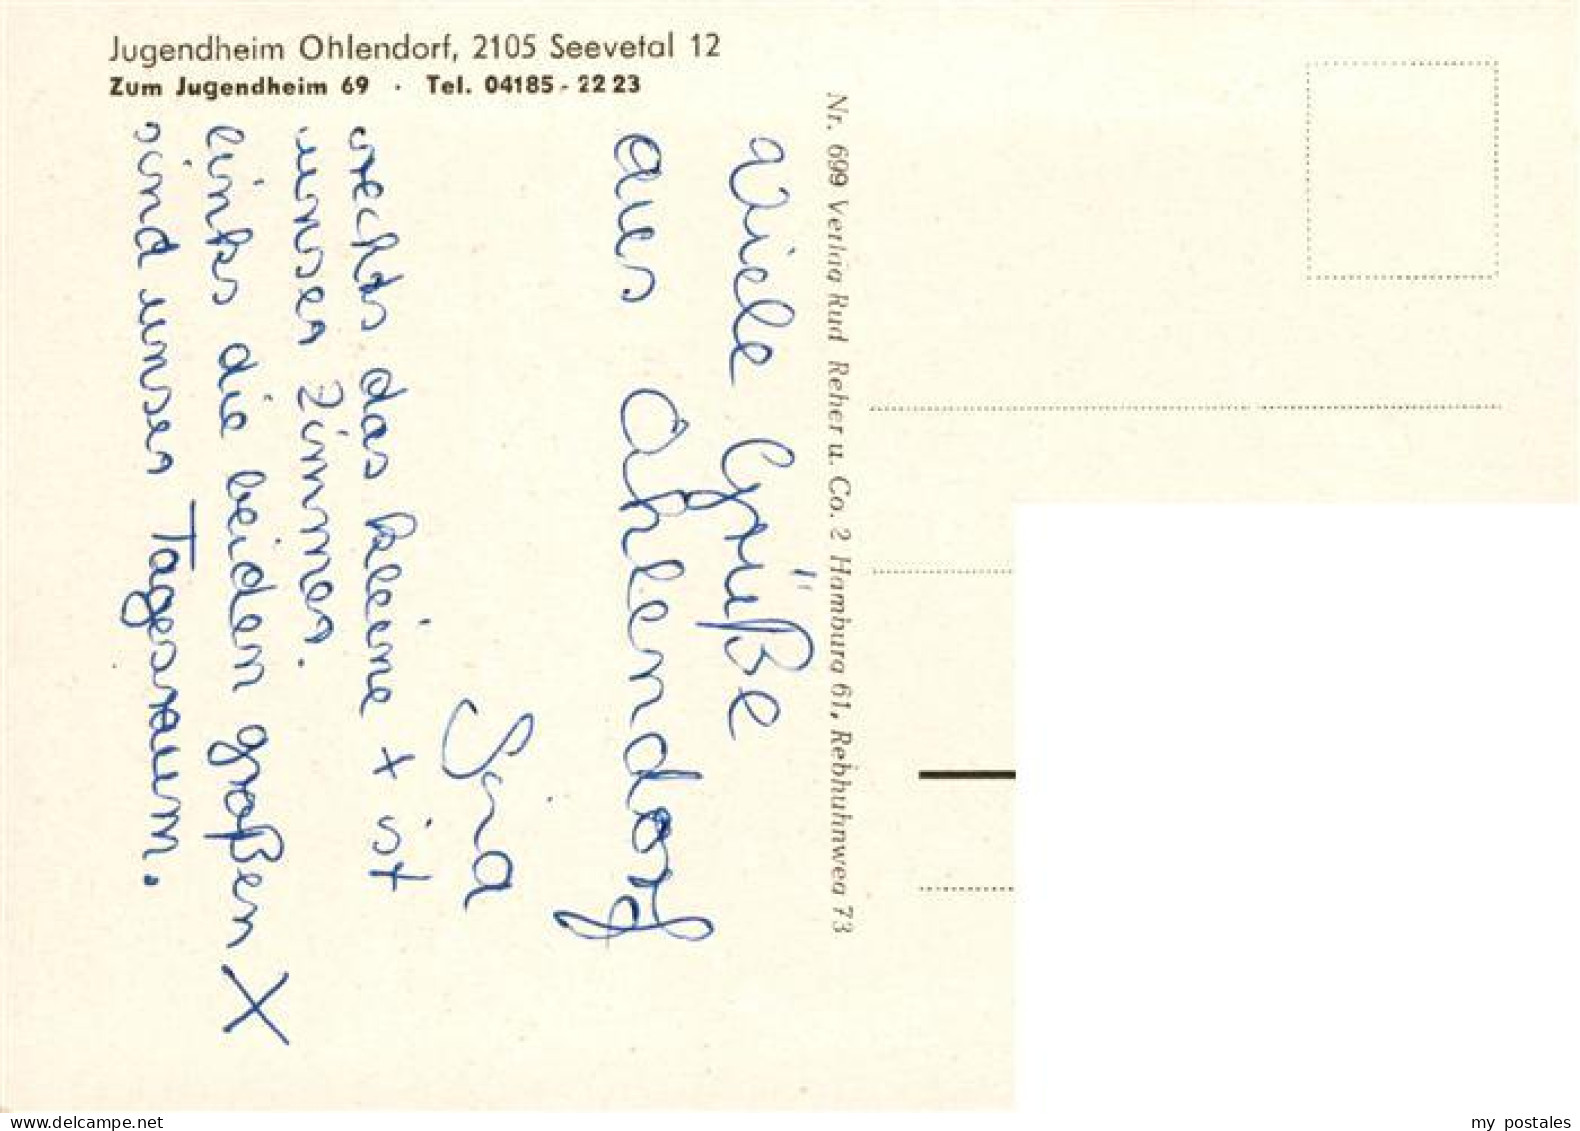 Jugendheim Ohlendorf, 2105 Seevetal 12
Zum Jugendheim 69 · Tel. 04185-22 23
Viele Grüße
aus Ohlendorf
rechts das kleine + ist
unser Zimmer.
links die beiden großen X
sind unser Tagesraum.
Nr. 699 Verlag Rud Reher u. Co. 2 Hamburg 61, Rebhuhnweg 73
www.delcampe.net
my postales